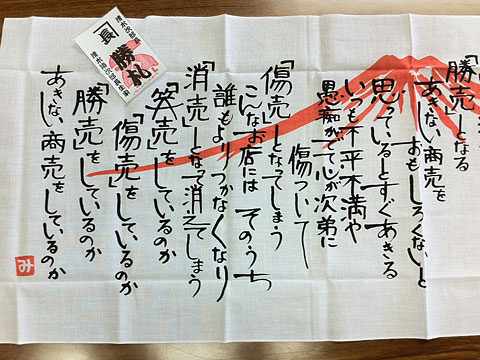 「勝売」となる
あきない商売を
おもしろくないと
思っているとすぐあきる
いつも不平不満や
愚痴がでて心が次第に
傷ついて
「傷売」となってしまう
こんなお店には そのうち
誰もよりつかなくなり
「消売」となって消えてしまう
「笑売」をしているのか
「傷売」をしているのか
「勝売」をしているのか
あきない商売をしているのか
み
勝札